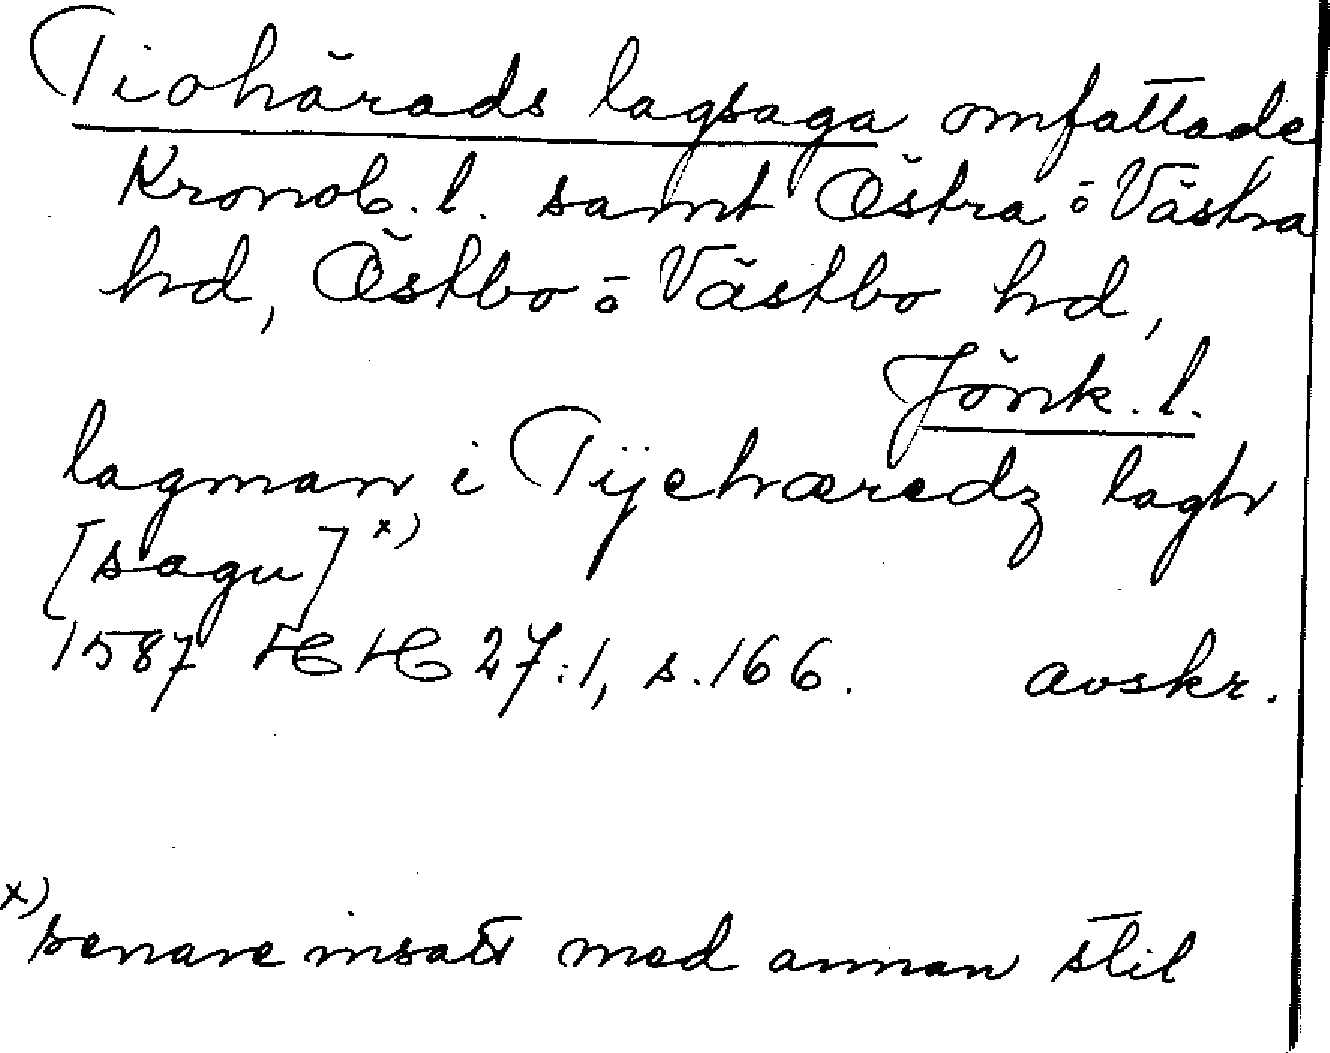 Tiohärads lagsaga omfattade
Kronob. l. samt Östra ō Västra
hd, Östbo ō Västbo hd,
Jönk. l.
lagman i Tijehæredz lagh
[sagu] x)
1587 HH 27:1, s. 166. avskr.
x) senare insatt med annan stil